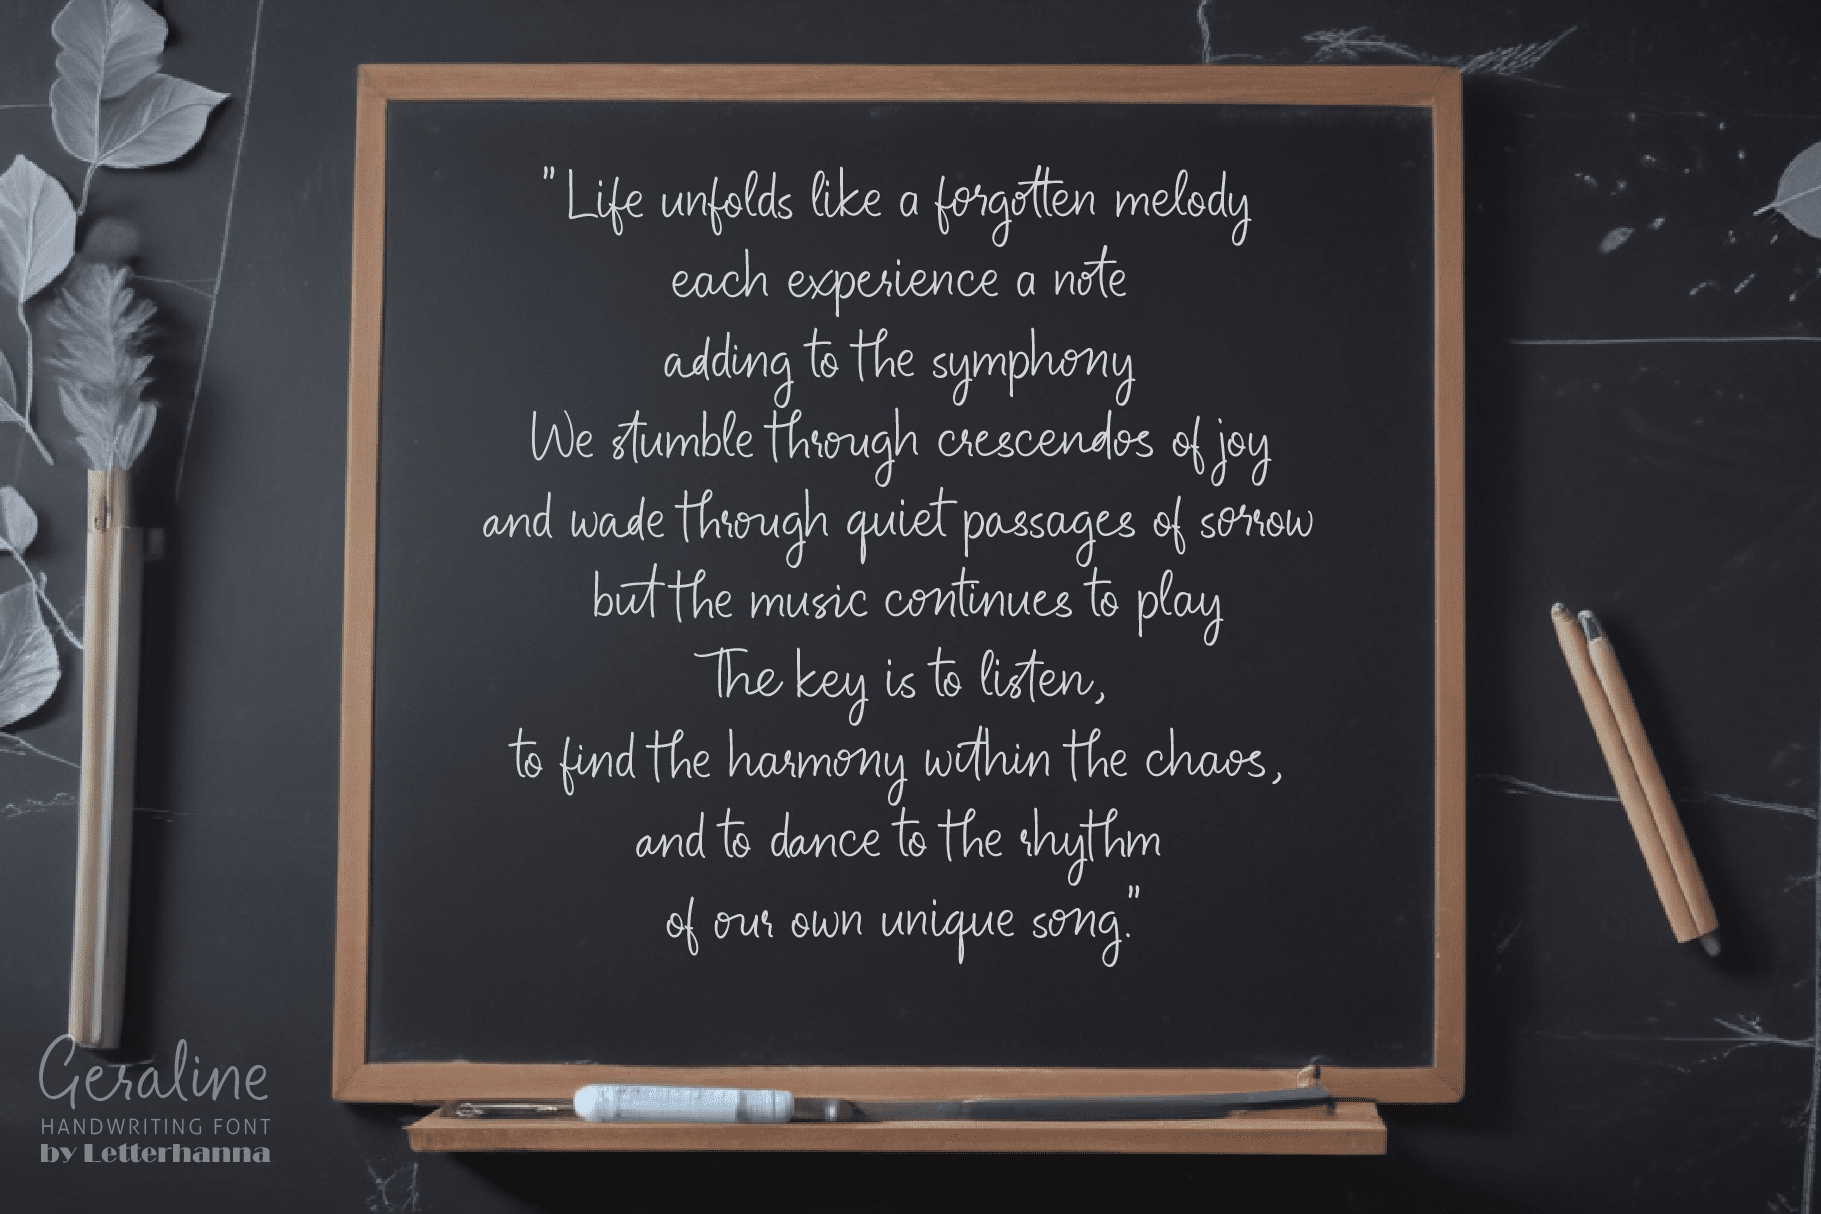 "Life unfolds like a forgotten melody
each experience a note
adding to the symphony
We stumble through crescendos of joy
and wade through quiet passages of sorrow
but the music continues to play
The key is to listen,
to find the harmony within the chaos,
and to dance to the rhythm
of our own unique song."
Geraline
HANDWRITING FONT
by Letterhanna